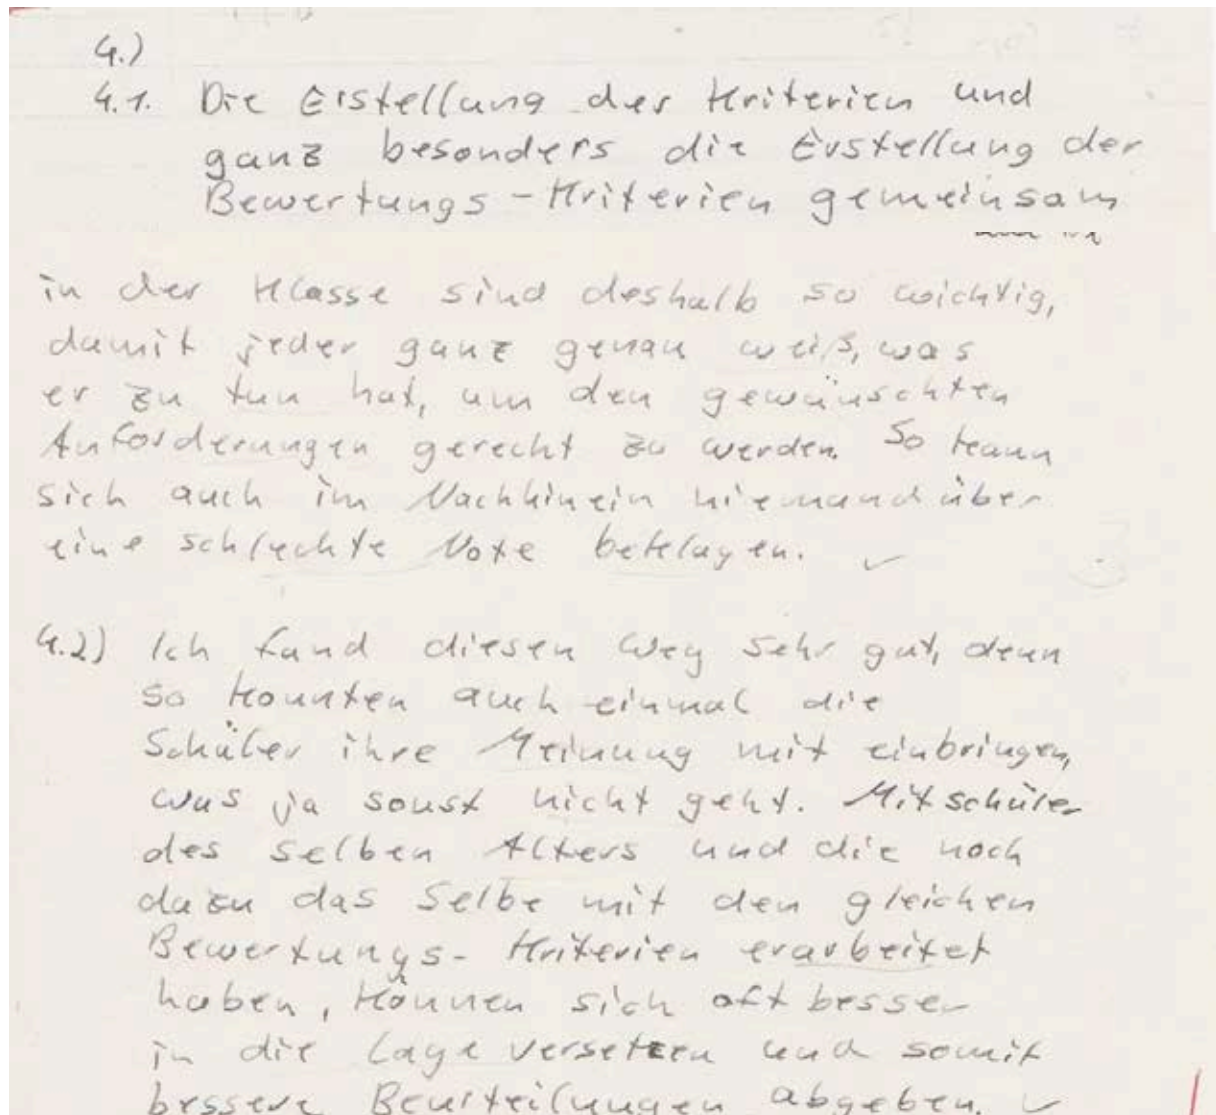 4.)
4.1. Die Erstellung der Kriterien und
ganz besonders die Erstellung der
Bewertungs-Kriterien gemeinsam
in der Klasse sind deshalb so wichtig,
damit jeder ganz genau weiß, was
er zu tun hat, um den gewünschten
Anforderungen gerecht zu werden. So kann
sich auch im Nachhinein niemand über
eine schlechte Note beklagen.
4.2) Ich fand diesen Weg sehr gut, denn
so konnten auch einmal die
Schüler ihre Meinung mit einbringen,
was ja sonst nicht geht. Mitschüler
des selben Alters und die noch
dazu das Selbe mit den gleichen
Bewertungs-Kriterien erarbeitet
haben, können sich oft besser
in die Lage versetzen und somit
bessere Beurteilungen abgeben.